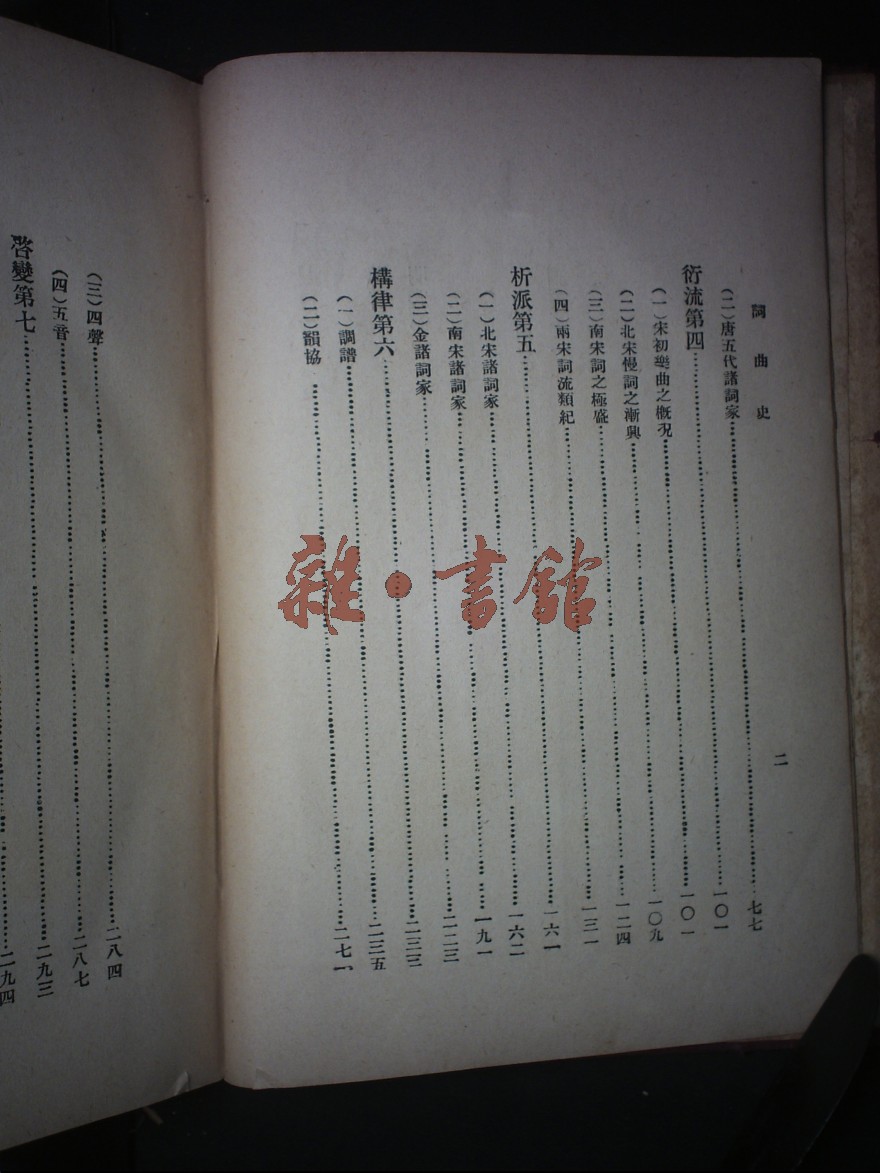 詞曲史
二
(二)唐五代諸詞家……七七
衍流第四……一〇一
(一)宋初樂曲之概況……一〇一
(二)北宋慢詞之漸興……一〇九
(三)南宋詞之極盛……一二四
(四)兩宋詞流類紀……一三一
析派第五……一六一
(一)北宋諸詞家……一六二
(二)南宋諸詞家……一九一
(三)金諸詞家……二二三
構律第六……二三三
(一)調譜……二三五
(二)韻協……二七一
(三)四聲……二八四
(四)五音……二八七
啓變第七……二九三
二九四
雜·書館